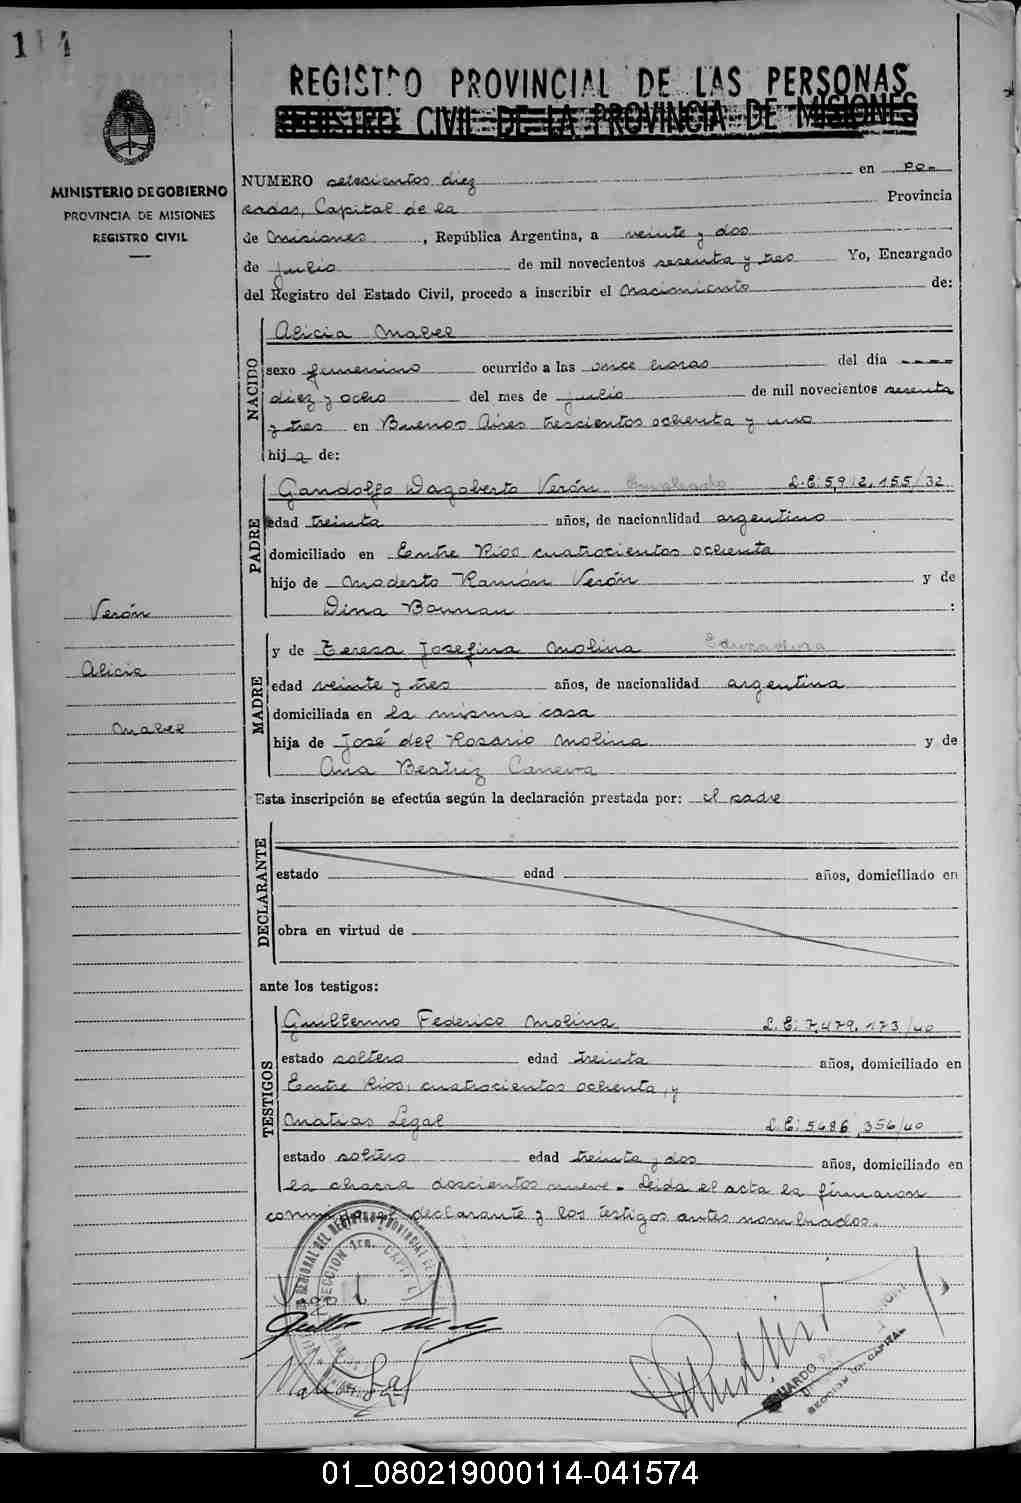 114
REGISTRO PROVINCIAL DE LAS PERSONAS
REGISTRO CIVIL DE LA PROVINCIA DE MISIONES
MINISTERIO DE GOBIERNO
PROVINCIA DE MISIONES
REGISTRO CIVIL
NUMERO setecientos diez en Po-
sadas, Capital de la Provincia
de Misiones, República Argentina, a veinte y dos
de julio de mil novecientos sesenta y tres Yo, Encargado
del Registro del Estado Civil, procedo a inscribir el Nacimiento de:
NACIDO
Alicia Mabel
sexo femenino ocurrido a las once horas del día ----
diez y ocho del mes de julio de mil novecientos sesenta
y tres en Buenos Aires trescientos ochenta y uno
hija de:
PADRE
Gandolfo Dagoberto Verón Empleado L.E: 5,912.155/32
edad treinta años, de nacionalidad argentino
domiciliado en Entre Rios cuatrocientos ochenta
hijo de Modesto Ramón Verón y de
Dina :
Verón
Alicia
Mabel
MADRE
y de Teresa Josefina Molina
edad veinte y tres años, de nacionalidad argentina
domiciliada en la misma casa
hija de José del Rosario Molina y de
Ana Beatriz
Esta inscripción se efectúa según la declaración prestada por: el padre
DECLARANTE
estado edad años, domiciliado en
obra en virtud de
ante los testigos:
TESTIGOS
Guillermo Federico Molina L.E: 7,479.173/40
estado soltero edad treinta años, domiciliado en
Entre Rios, cuatrocientos ochenta, y
Matias Legal L.E: 5686,356/40
estado soltero edad treinta y dos años, domiciliado en
la chacra doscientos nueve. Leida el acta la firmaron
conmigo el declarante y los testigos antes nombrados.
SECCION 1ra. CAPITAL
SECCION 1ra. CAPITAL
01_080219000114-041574